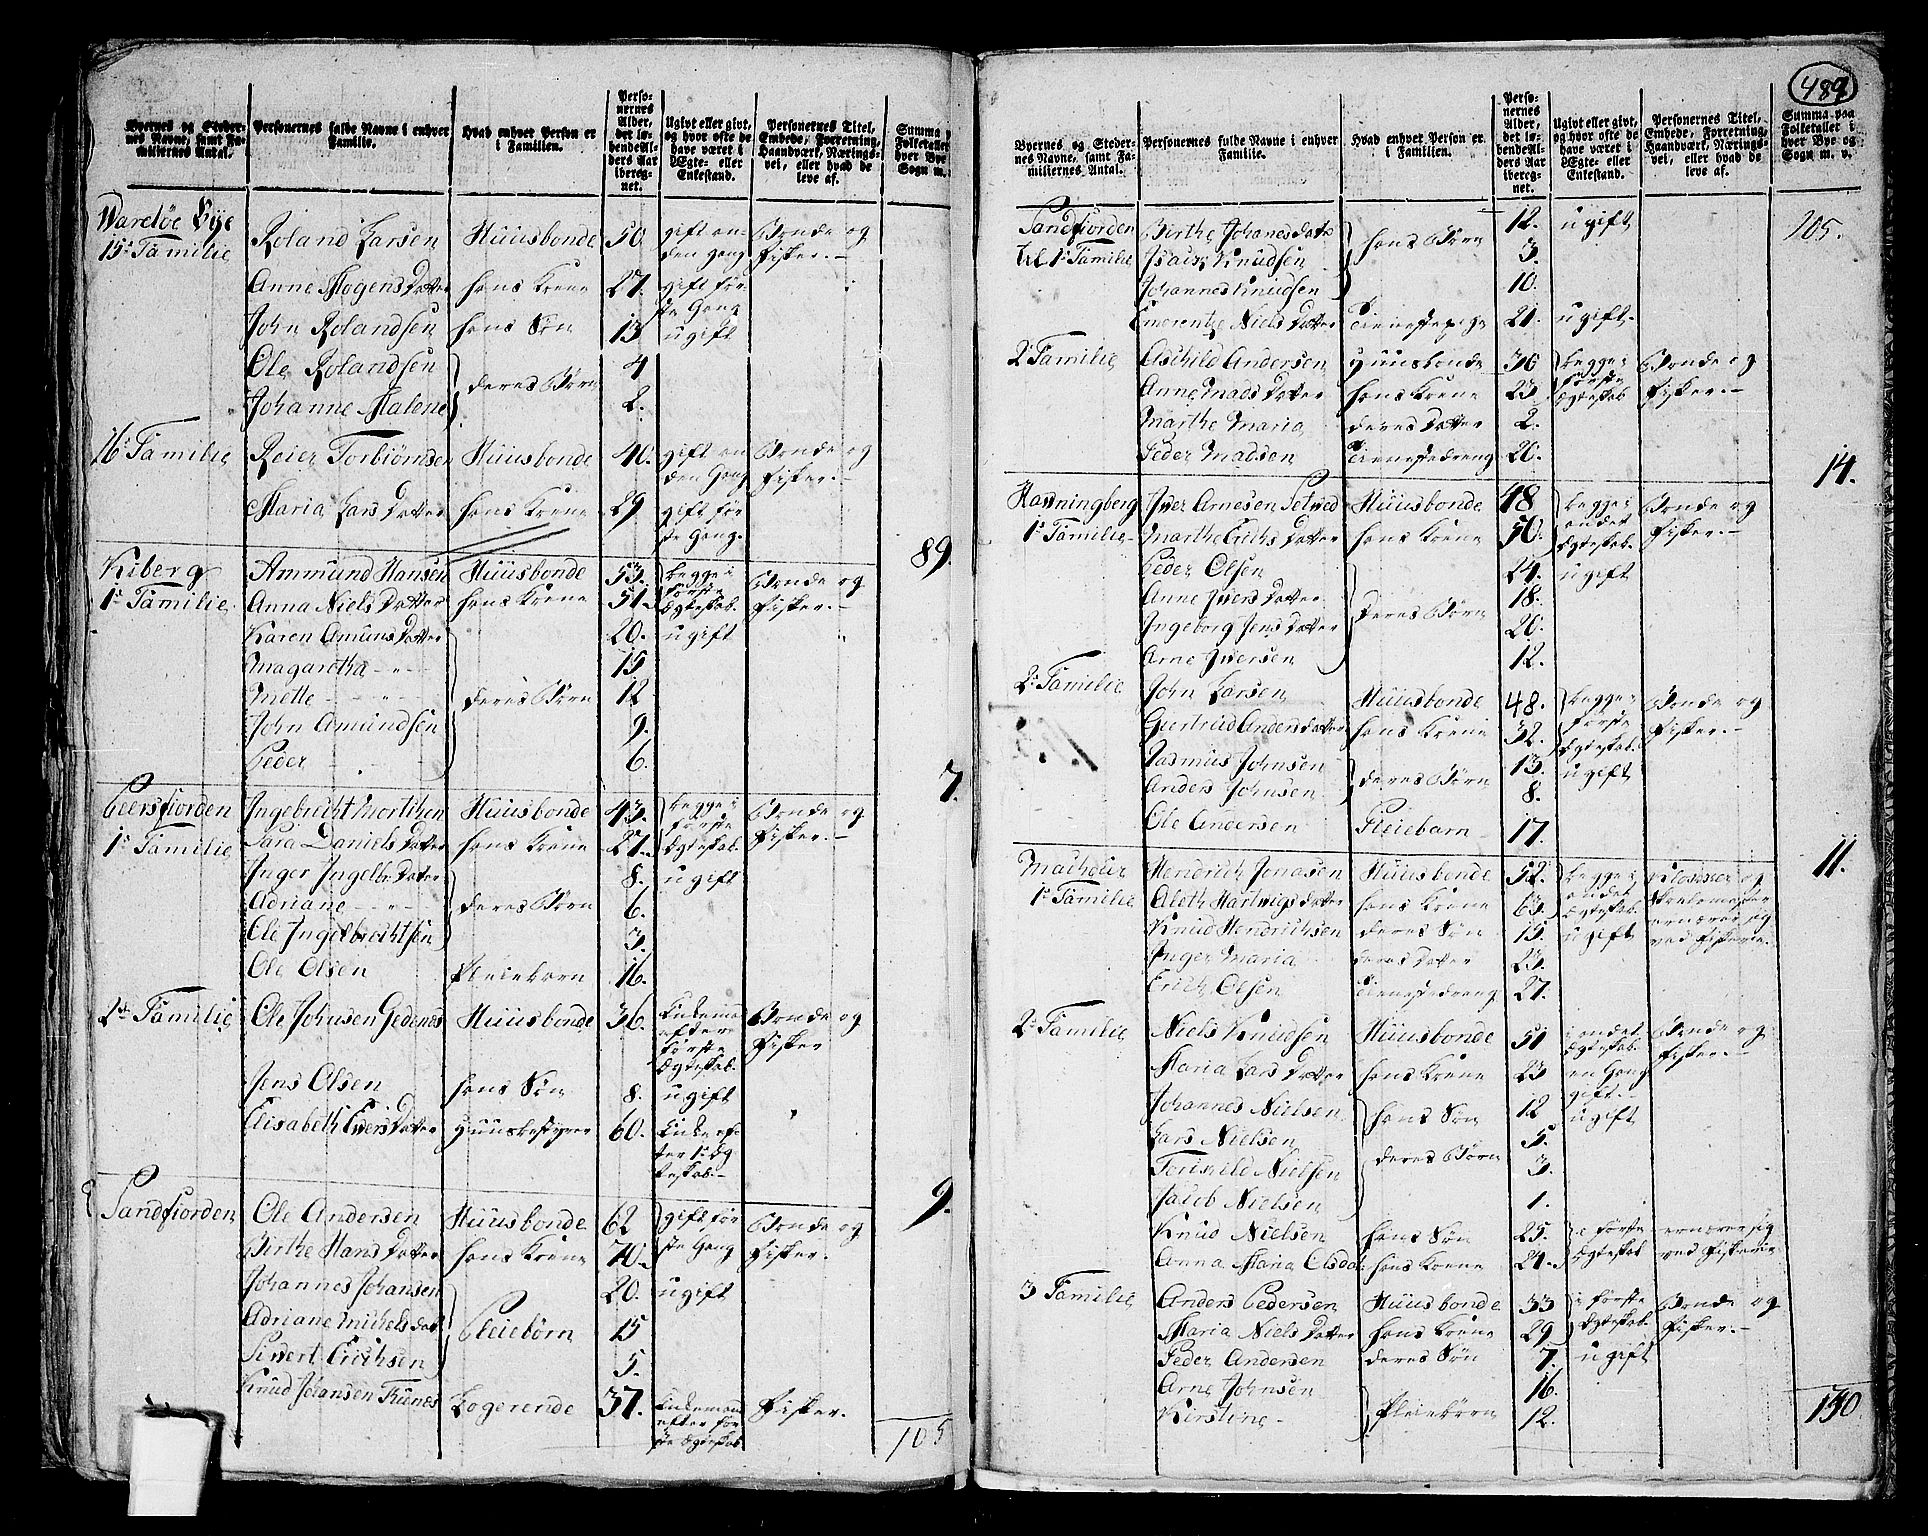 Byernes og Steder-
nes Navne, samt Fa-
miliernes Antal.
Personernes fulde Navne i enhver
Familie.
Hvad enhver Person er
i Familien.
Perso-
nernes
Alder,
det lø-
bende Al-
ders Aar
iberegnet.
Ugivt eller givt,
og hvor ofte de
have været i
Ægte- eller
Enkestand.
Personernes Titel,
Embede, Forretning,
Haandværk, Nærings-
vei, eller hvad de
leve af.
Summa
Folketallet
hver Bye
Sogn m.
Wardøe Bye
15de Familie Roland Larsen Huusbonde 50 gift anden Gang Bonde og Fisker.
Anne Mogens Datter hans Kone 27. gift første Gang
John Rolandsen hans Søn 13 ugift
Ole Rolandsen deres Børn 4
Johanne Malene 2.
16 Familie Reier Torbiörnsen Huusbonde 40. gift anden Gang Bonde og Fisker.
Maria Lars Datter hans Kone 29 gift første Gang. 89.
Kiberg
1te Familie Ammund Hansen Huusbonde 53. begge i første Ægteskab. Bonde og Fisker.
Anna Niels Datter hans Kone 51.
Karen Amuns Datter deres Børn 20. ugift
Magaretha 15
Mette 12
John Amundsen 9.
Peder 6. 7.
Peersfjorden
1te Familie Ingebricht Morthen Huusbonde 43. begge i første Ægteskab. Bonde og Fisker.
Sara Daniels Datter hans Kone 27.
Inger Ingelbr. Datter deres Børn 8. ugift
Adriane 6.
Ole Ingelbrechtsen 3.
Ole Olsen Pleiebarn 16.
2den Familie Ole Johnsen Gedenæs Huusbonde 36. Enkemand efter første Ægteskab. Bonde og Fisker
Jens Olsen hans Søn 8. ugift
Elisabeth Ivers Datter Huusbestyrer 60. Enke efter 1te Ægteskab. 9.
Sandfjorden Ole Andersen Huusbonde 62 gift første Gang Bonde og Fisker.
Birthe Hans Datter hans Kone 70.
Johannes Johansen Pleiebørn 20. ugift
Adriane Michels datt 15
Sivert Erichsen 5.
Knud Johansen Trunes Logerende 37. Enkemand efter første Ægteskab Fisker.
105
489
Byernes og Steder-
nes Navne, samt Fa-
miliernes Antal.
Personernes fulde Navne i enhver
Familie.
Hvad enhver Person er
i Familien.
Perso-
nernes
Alder,
det lø-
bende Al-
ders Aar
iberegnet.
Ugivt eller givt,
og hvor ofte de
have været i
Ægte- eller
Enkestand.
Personernes Titel,
Embede, Forretning,
Haandværk, Nærings-
vei, eller hvad de
leve af.
Summa paa
Folketallet i
hver Bye og
Sogn m. v.
Sandfjorden
til 1te Familie Birthe Johanes Datt hans Børn 12. ugift 105.
Isach Knudsen 3.
Johannes Knudsen 10.
Emerentze Niels Datter Tienestepige 21. ugift.
2de Familie Aschild Andersen Huusbonde 30 begge i første Ægteskab Bonde og Fisker.
Anne Mads Datter hans Kone 23
Marthe Maria deres Datter 2.
Peder Madsen Tienestedreng 20. 14.
Havningberg
1te Familie Iver Arnesen Huusbonde 48 begge i andet Ægteskab. Bonde og Fisker.
Marthe Erichs Datter hans Kone 50.
Peder Olsen deres Børn 24. ugift
Anne Ivers Datter 18.
Ingeborg Jens Datter 20.
Arne Iversen 12.
2de Familie John Larsen Huusbonde 48. begge i første Ægteskab. Bonde og Fisker.
Giertrud Anders Datter hans Kone 32.
Rasmus Johnsen deres Børn 13. ugift
Anders Johnsen 8.
Ole Andersen Pleiebarn 17. 11.
Macheur
1te Familie Hendrich Jonasen Huusbonde 52. begge i andet Ægteskab. Klokker og Skolemester ernærer sig ved Fiskerie.
Aleth Hartvigs Datter hans Kone 63.
Knud Hendrichsen deres Søn 15. ugift
Inger Maria deres Datter 23.
Erich Olsen Tienestedreng 27.
2de Familie Niels Knudsen Huusbonde 51 i andet Ægteskab. Bonde og Fisker.
Maria Lars Datter hans Kone 23 en Gang gift.
Johannes Nielsen hans Søn 12 ugift
Lars Nielsen deres Børn 5.
Torkild Nielsen 3.
Jacob Nielsen 1.
Knud Nielsen hans Søn 25. i første Ægteskab ernærer sig ved Fiskerie
Anna Maria Olsdat hans Kone 24.
3 Familie Anders Pedersen Huusbonde 33 i første Ægteskab. Bonde og Fisker.
Maria Niels Datter hans Kone 29
Peder Andersen deres Søn 7. ugift
Arne Johnsen Pleiebørn 16.
Kirstine 12.
150